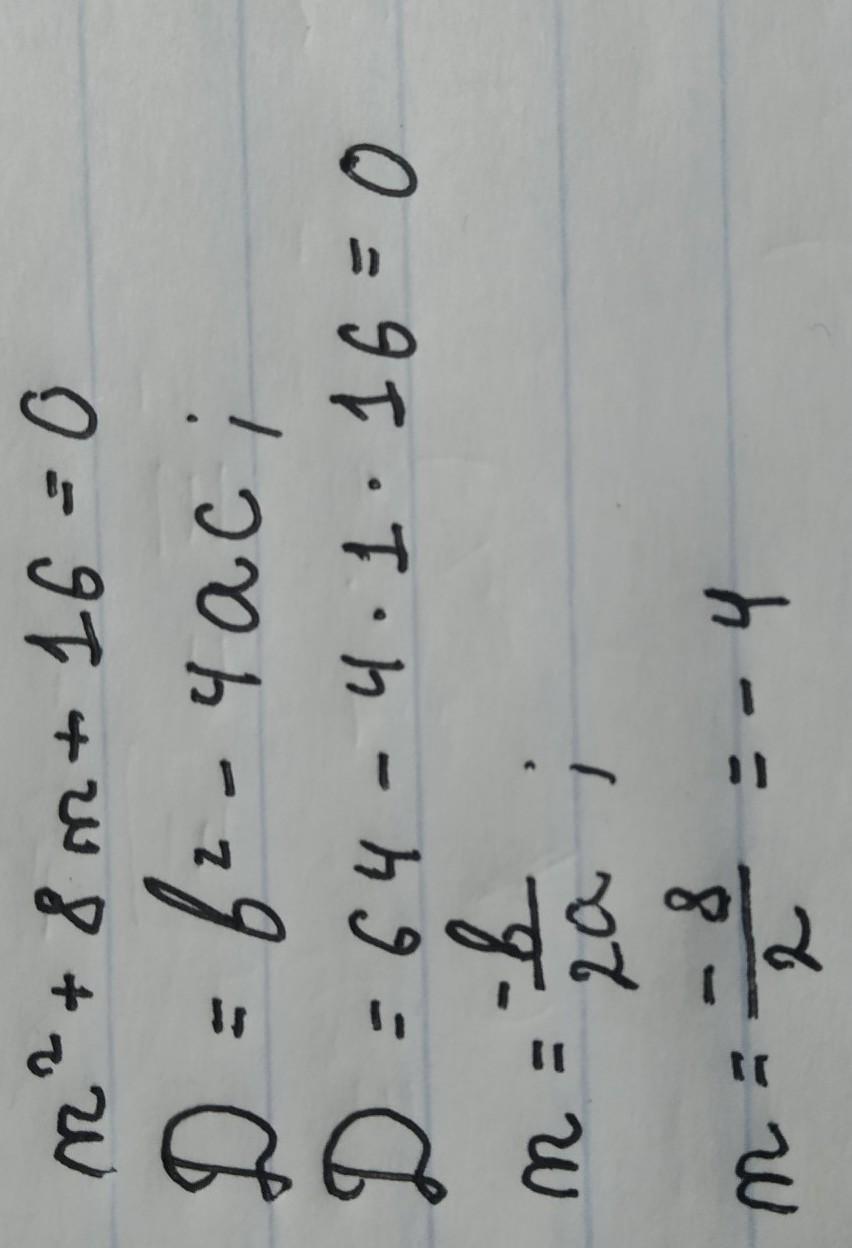 m² + 8m + 16 = 0
D = b² - 4ac;
D = 64 - 4 · 1 · 16 = 0
m = -b/2a;
m = -8/2 = -4